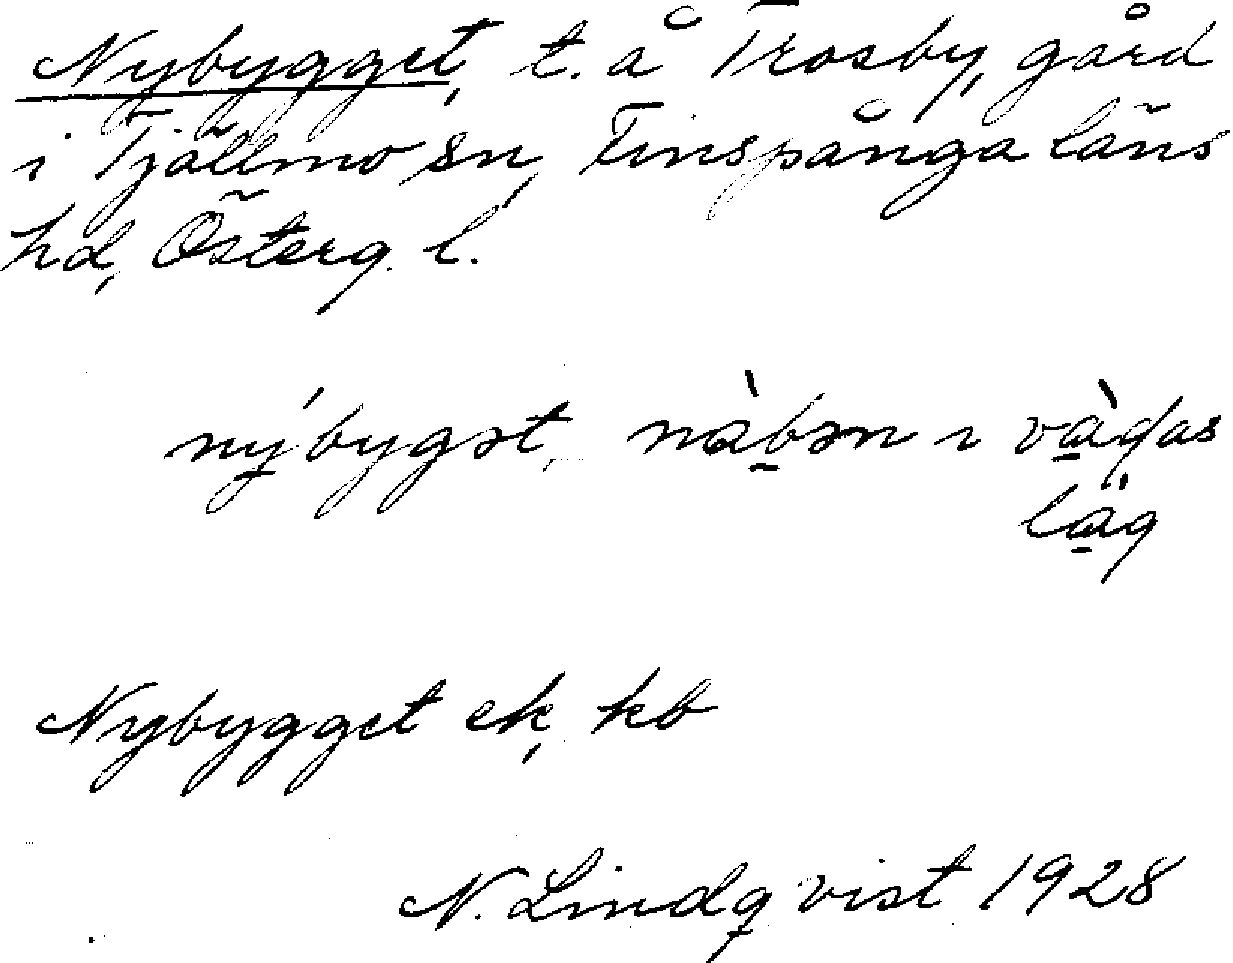 Nybygget, t. å Trosby, gård
i Tjällmo sn, Finspånga läns
hd, Österg. l.
nýbygət, nàbən ı vàgas
läg
Nybygget ek, kb
N. Lindqvist 1928